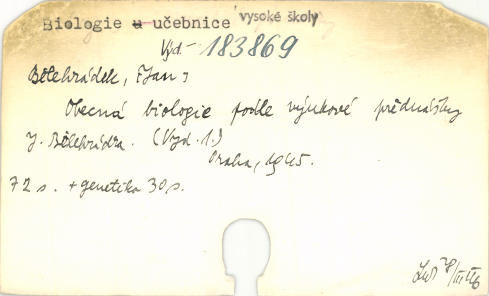 Biologie u učebnice vysoké školy
Výd.- 183869
Bělehrádek, [Jan]
Obecná biologie podle výukové přednášky
J. Bělehrádka. (Vyd. 1.)
Praha, 1945.
72 s. + genetika 30 s.